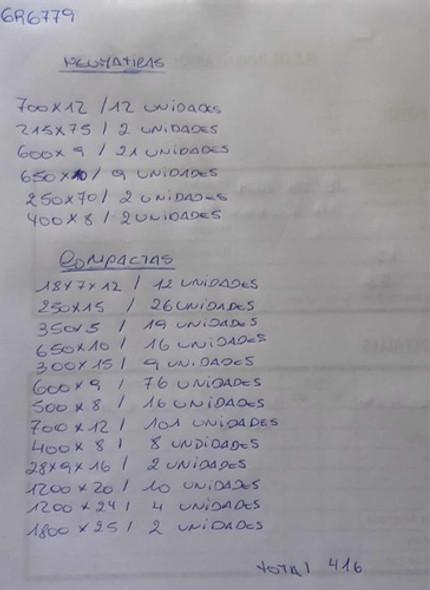 6R6779
NEUMATICAS
700x12 / 12 UNIDADES
215x75 / 2 UNIDADES
600x9 / 21 UNIDADES
650x10 / 9 UNIDADES
250x70 / 2 UNIDADES
400x8 / 2 UNIDADES
COMPACTAS
18x7x12 / 12 UNIDADES
250x15 / 26 UNIDADES
350x5 / 19 UNIDADES
650x10 / 16 UNIDADES
300x15 / 9 UNIDADES
600x9 / 76 UNIDADES
500x8 / 16 UNIDADES
700x12 / 101 UNIDADES
400x8 / 8 UNDIDADES
28x9x16 / 2 UNIDADES
1200x20 / 10 UNIDADES
1200x24 / 4 UNIDADES
1800x25 / 2 UNIDADES
TOTAL 416